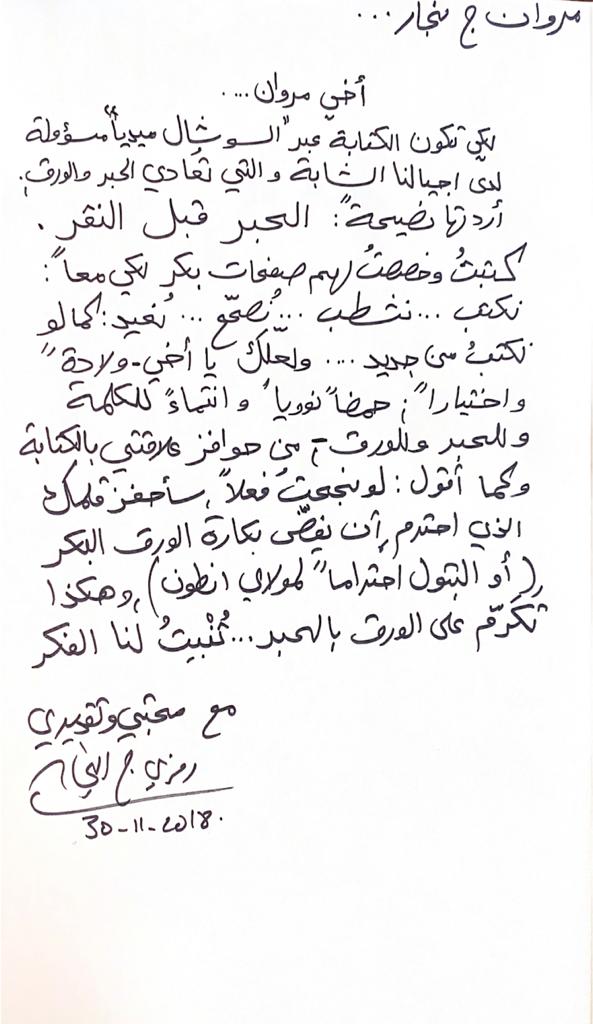 مروان ج نجار...
أخي مروان....
لكي تكون الكتابة عبر "السوشال ميديا" مسؤولة
لدى اجيالنا الشابة والتي تُعادي الحبر والورق؛
أردتها نصيحةً: الحبر قبل النقر.
كتبتُ وخصصتُ لهم صفحات بكر لكي معاً:
نكتب... نشطب... نُصحّح... نُعيد: كما لو
نكتبُ من جديد.... ولعلّك يا أخي - ولادةً
واختياراً؛ حمضاً نووياً وانتماءً للكلمة
وللحبر وللورق - من حوافز علاقتي بالكتابة
وكما أقول: لو نجحتُ فعلاً، سأحفز قلمك
الذي احترم، أن يفضّ بكارة الورق البكر
(أو البتول احتراماً لمولاي انطون)، وهكذا
تكرّم على الورق بالحبر... تُنْبِتُ لنا الفكر
مع محبتي وتقديري
رمزي ج النجار
30-11-2018.